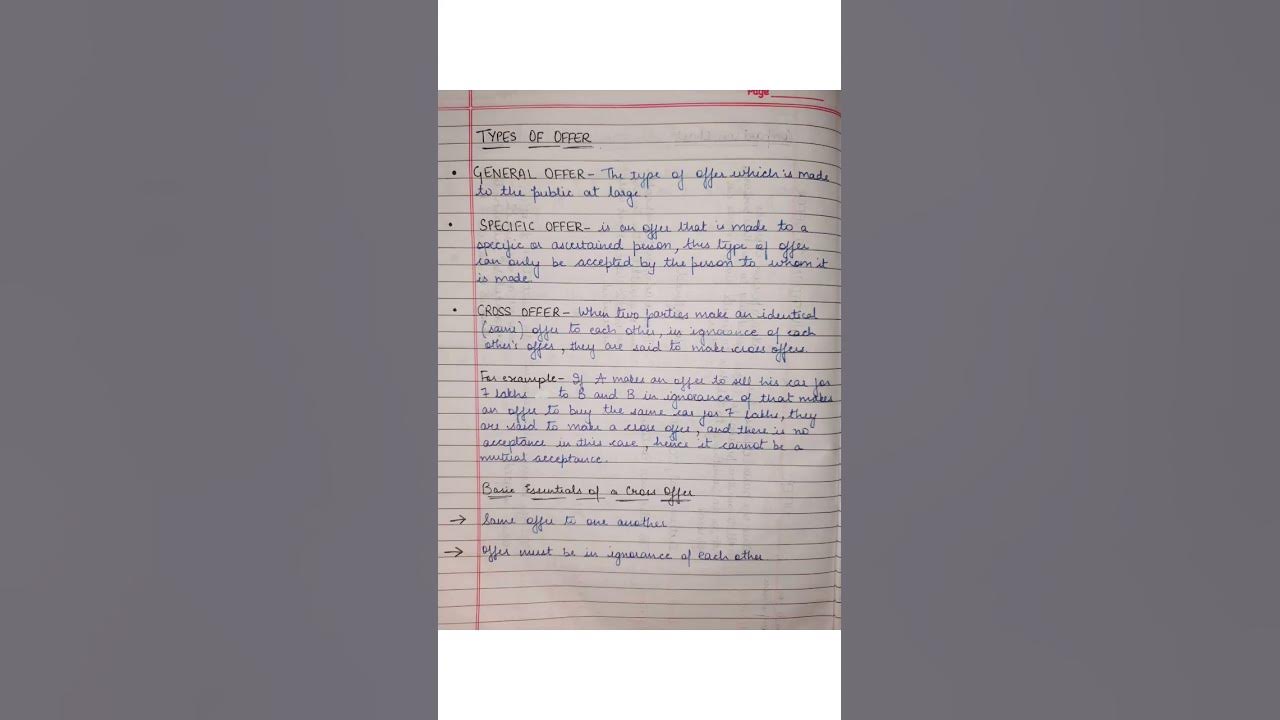 Page
TYPES OF OFFER
• GENERAL OFFER- The type of offer which is made
to the public at large.
• SPECIFIC OFFER- is an offer that is made to a
specific or ascertained person, this type of offer
can only be accepted by the person to whom it
is made.
• CROSS OFFER- When two parties make an identical
(same) offer to each other, in ignorance of each
other's offer, they are said to make cross offers.
For example- If A makes an offer to sell his car for
7 lakhs to B and B in ignorance of that makes
an offer to buy the same car for 7 lakhs, they
are said to make a cross offer, and there is no
acceptance in this case, hence it cannot be a
mutual acceptance.
Basic Essentials of a Cross Offer
→ Same offer to one another
→ Offer must be in ignorance of each other